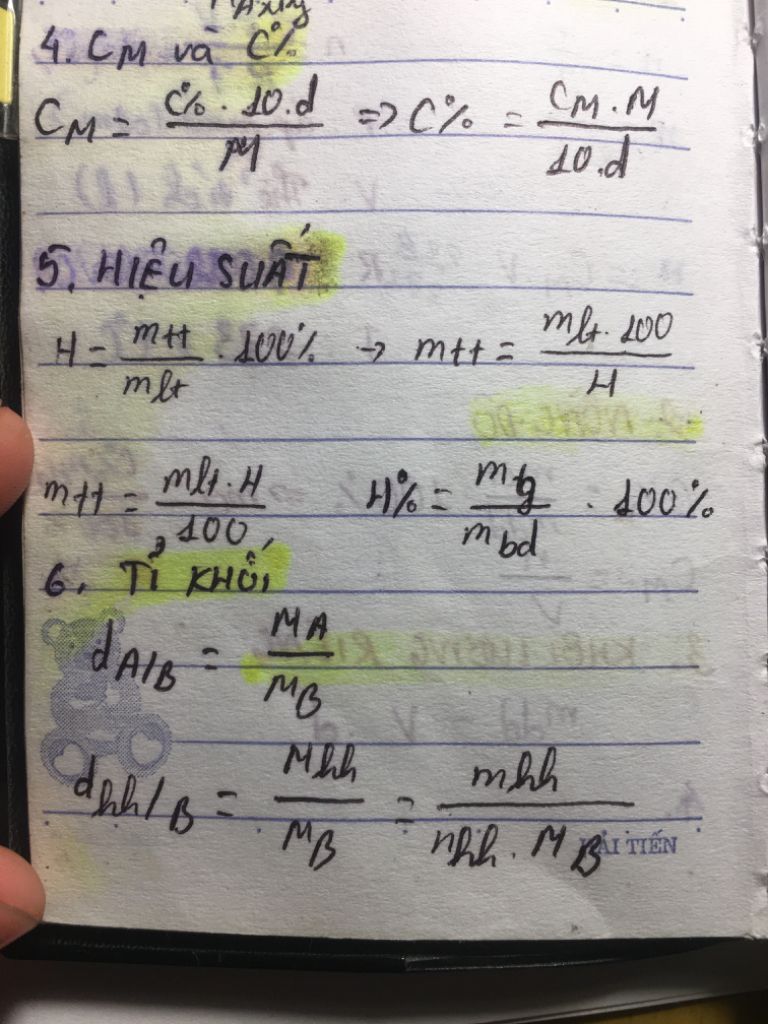 4. CM và C%
CM = C% . 10.d / M => C% = CM . M / 10.d
5. HIỆU SUẤT
H = mtt / mlt . 100% → mtt = mlt . 100 / H
mtt = mlt . H / 100 H% = mtg / mbd . 100%
6. TỈ KHỐI
dA/B = MA / MB
dhh/B = Mhh / MB = mhh / nhh . MB
HẢI TIẾN